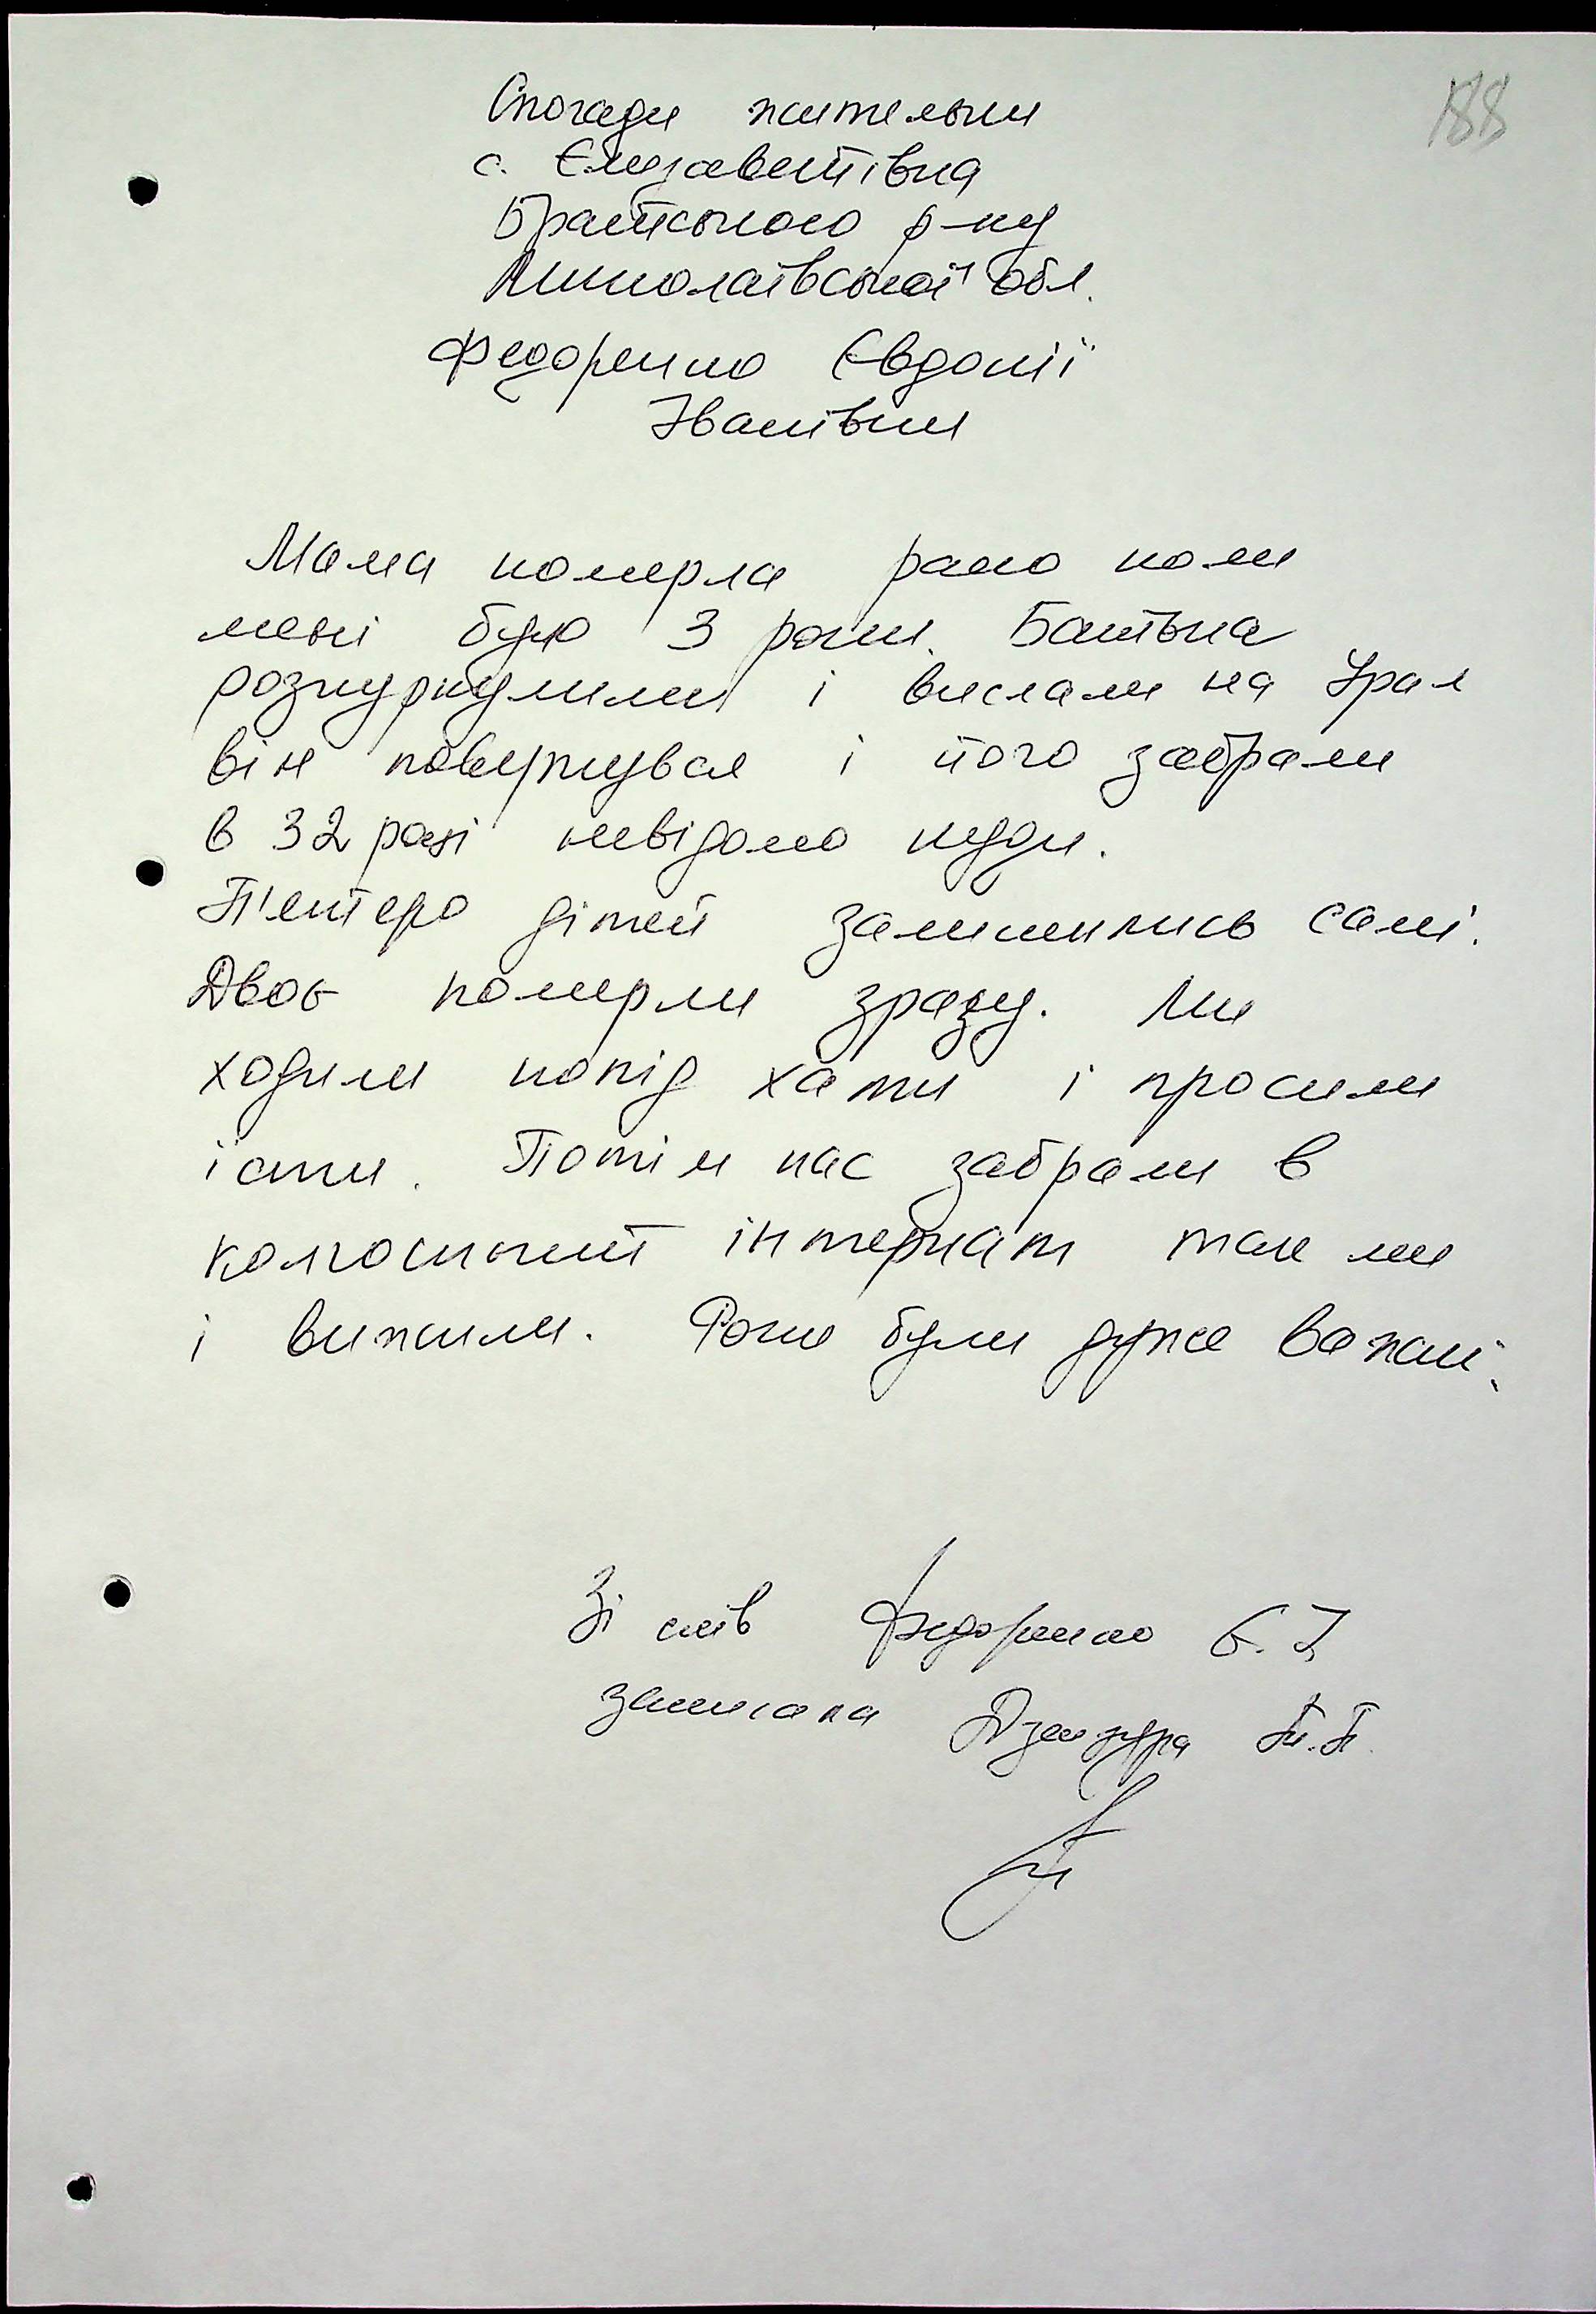 188
Спогади жительки
с. Єлизаветівка
Братського р-ну
Миколаївської обл.
Федоренко Євдокії
Іванівни
Мама померла рано коли
мені було 3 роки. Батька
розкуркулили і вислали на Урал
він повертувся і його забрали
в 32 році невідомо куди.
П'ятеро дітей залишились самі.
Двоє померли зразу. Ми
ходили попід хати і просили
їсти. Потім нас забрали в
колгоспний інтернат так ми
і вижили. Роки були дуже важкі.
Зі слів Федоренко Є. І
записала П.П.